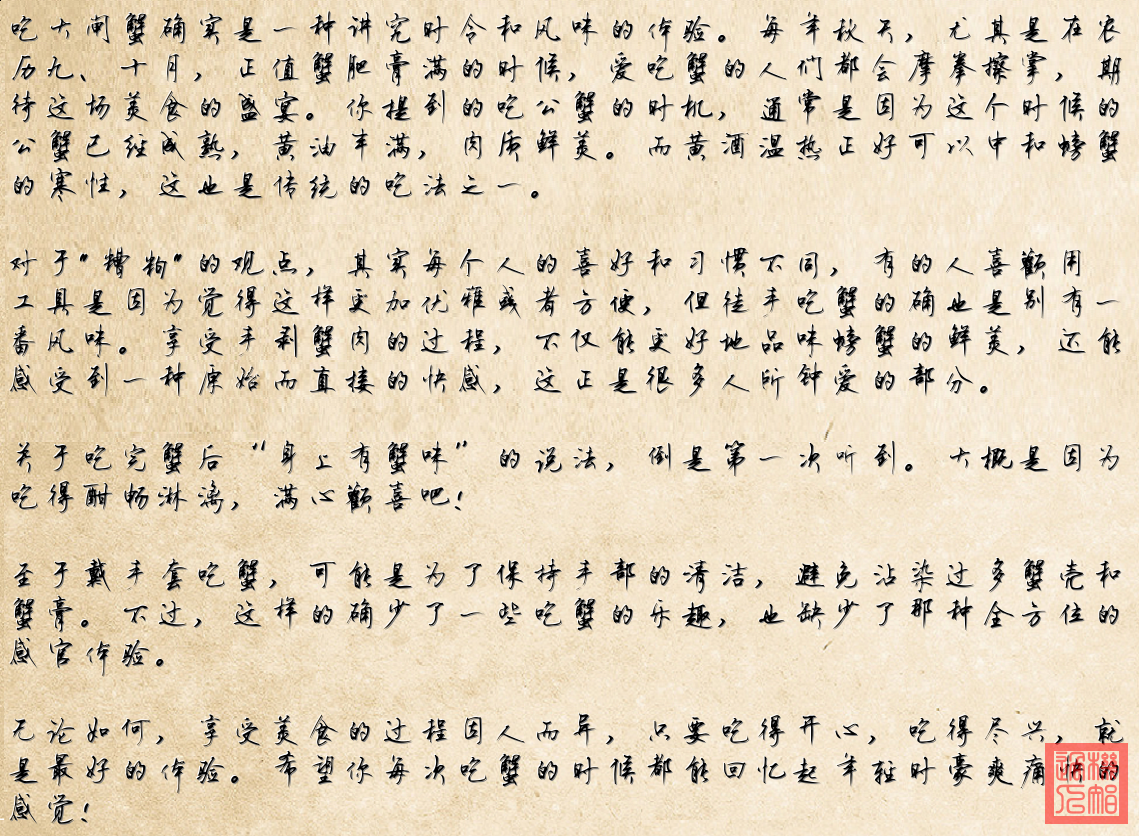 吃大闸蟹确实是一种讲究时令和风味的体验。每年秋天，尤其是在农
历九、十月，正值蟹肥膏满的时候，爱吃蟹的人们都会摩拳擦掌，期
待这场美食的盛宴。你提到的吃公蟹的时机，通常是因为这个时候的
公蟹已经成熟，黄油丰满，肉质鲜美。而黄酒温热正好可以中和螃蟹
的寒性，这也是传统的吃法之一。
对于"糟粕"的观点，其实每个人的喜好和习惯不同，有的人喜欢用
工具是因为觉得这样更加优雅或者方便，但徒手吃蟹的确也是别有一
番风味。享受手剥蟹肉的过程，不仅能更好地品味螃蟹的鲜美，还能
感受到一种原始而直接的快感，这正是很多人所钟爱的部分。
关于吃完蟹后“身上有蟹味”的说法，倒是第一次听到。大概是因为
吃得酣畅淋漓，满心欢喜吧！
至于戴手套吃蟹，可能是为了保持手部的清洁，避免沾染过多蟹壳和
蟹膏。不过，这样的确少了一些吃蟹的乐趣，也缺少了那种全方位的
感官体验。
无论如何，享受美食的过程因人而异，只要吃得开心，吃得尽兴，就
是最好的体验。希望你每次吃蟹的时候都能回忆起年轻时豪爽痛快的
感觉！